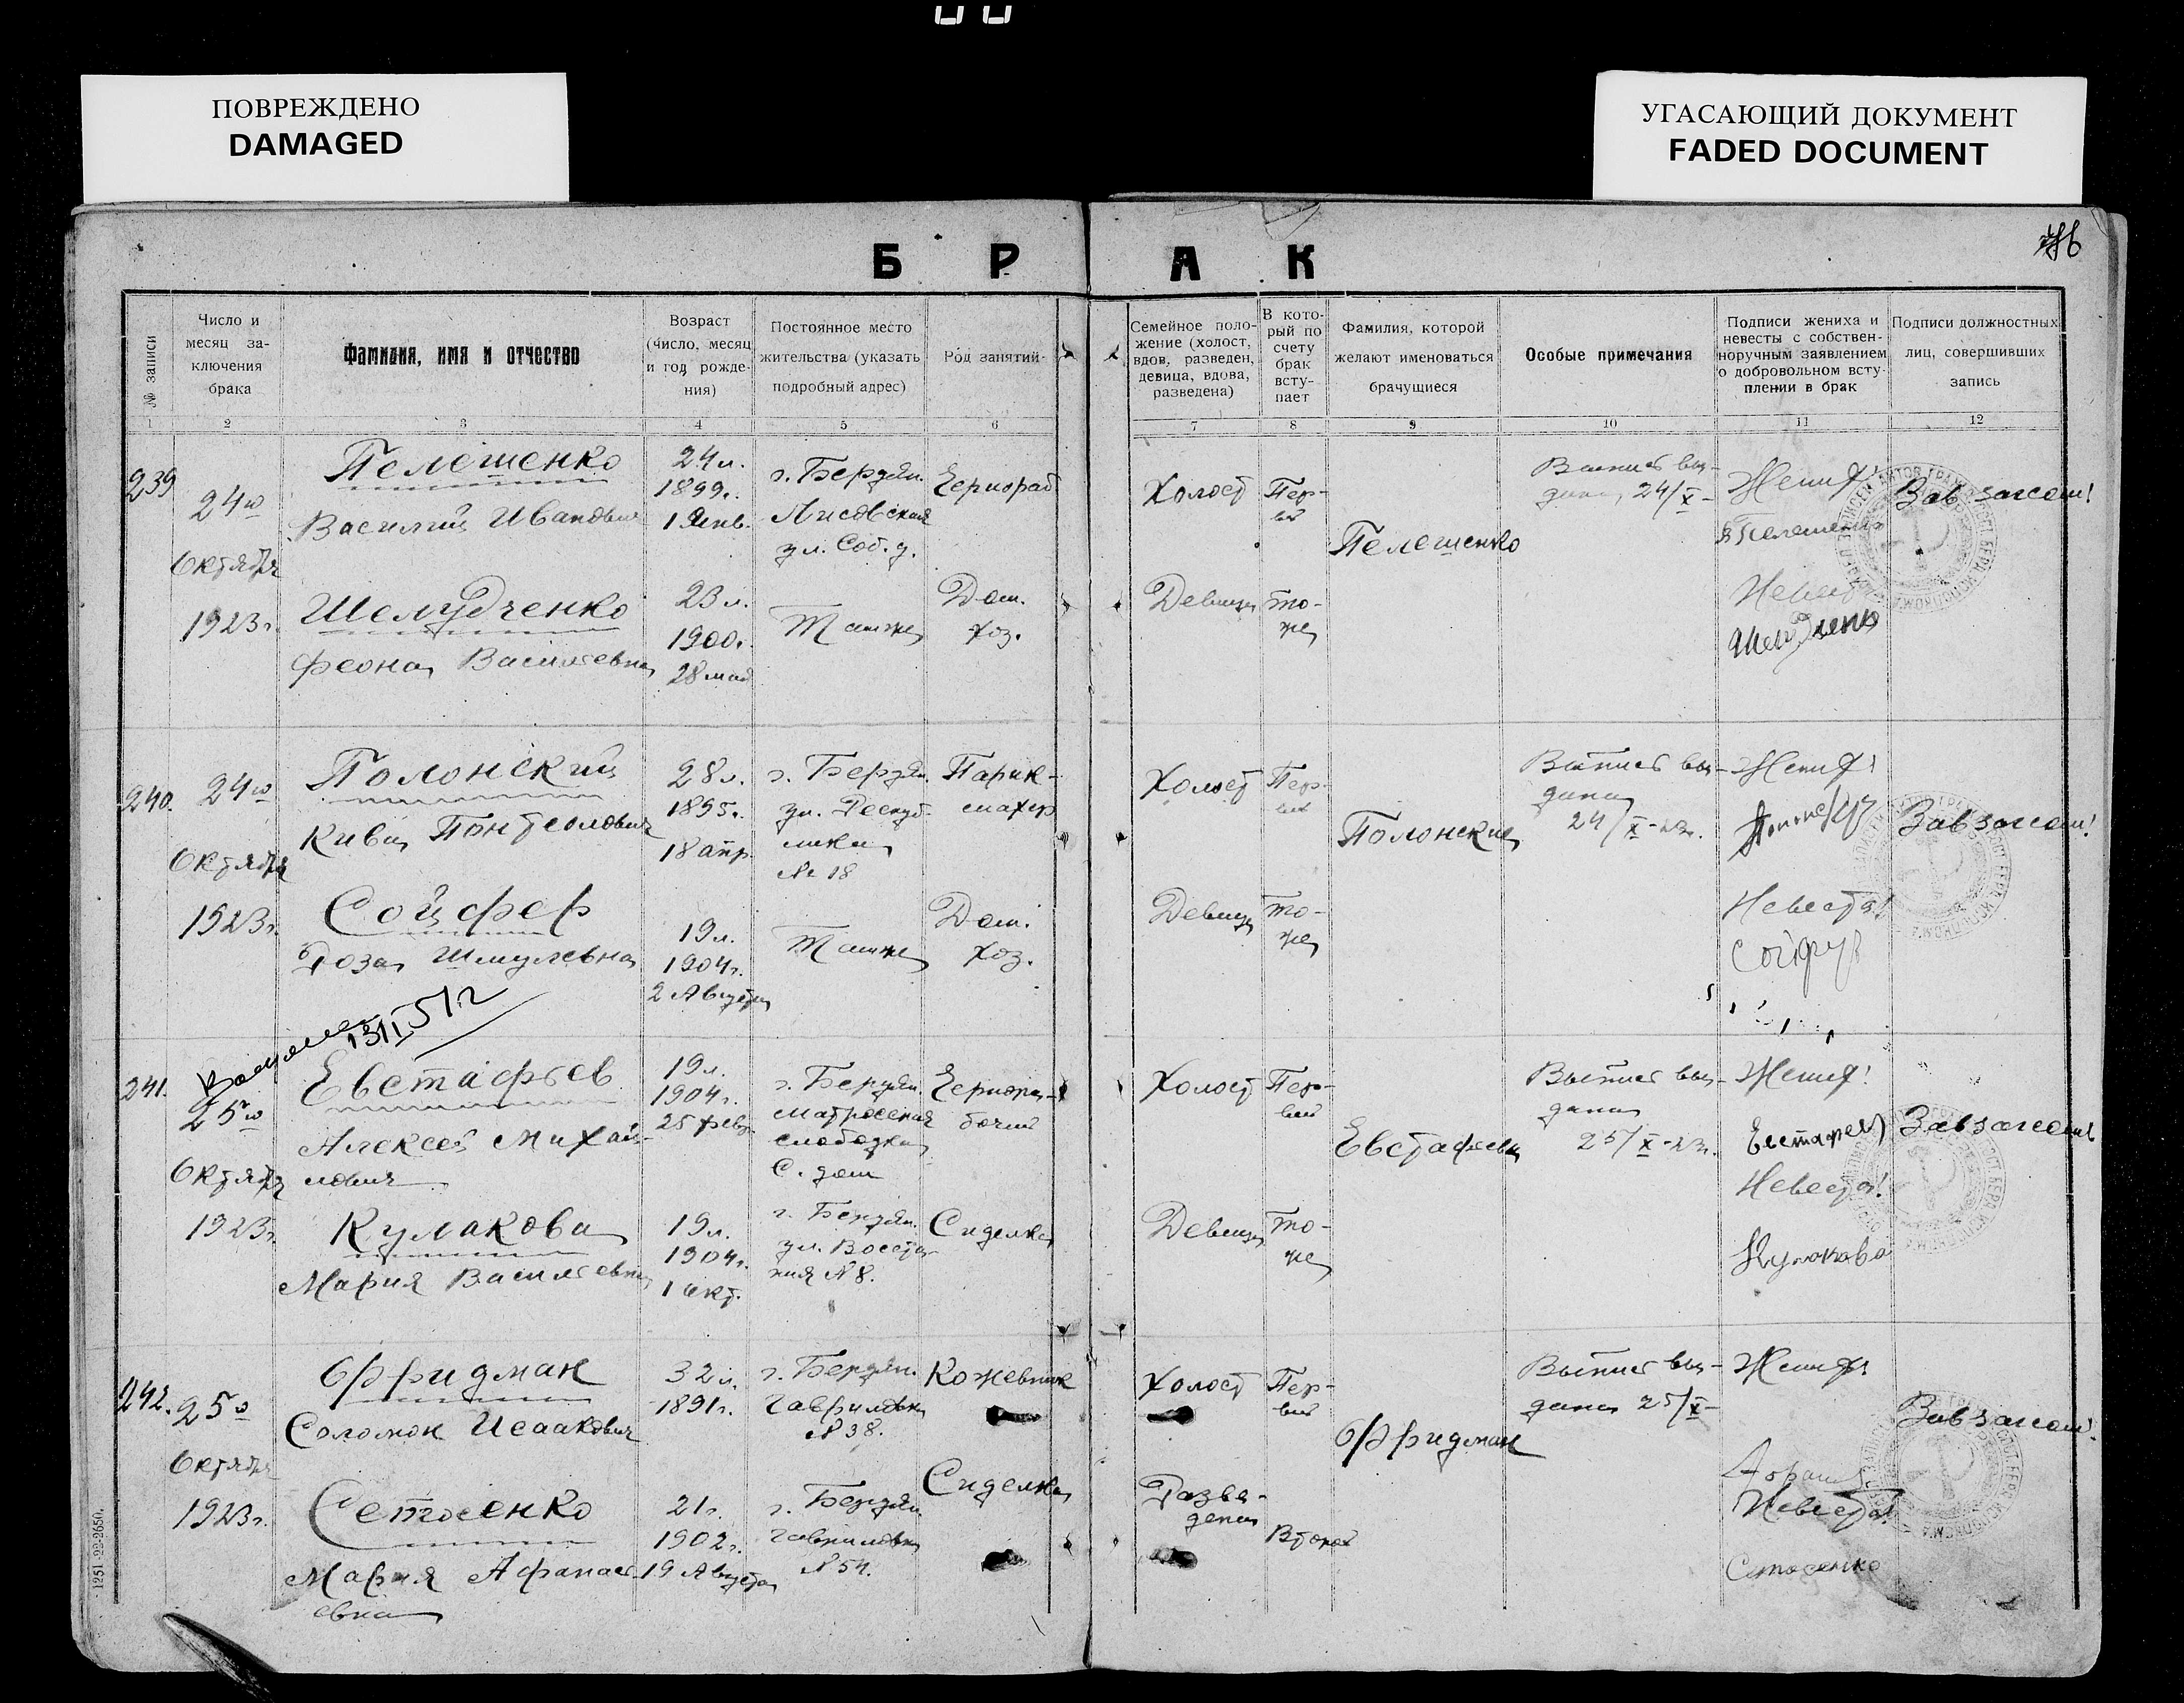 ПОВРЕЖДЕНО
DAMAGED
УГАСАЮЩИЙ ДОКУМЕНТ
FADED DOCUMENT
БРАК
№ записи
Число и
месяц за-
ключения
брака
Фамилия, имя и отчество
Возраст
(число, месяц
и год рожде-
ния)
Постоянное место
жительства (указать
подробный адрес)
Род занятий
Семейное поло-
жение (холост,
вдов, разведен,
девица, вдова,
разведена)
В кото-
рый по
счету
брак
всту-
пает
Фамилия, которой
желают именоваться
брачущиеся
Особые примечания
Подписи жениха и
невесты с собствен-
норучным заявлением
о добровольном всту-
плении в брак
Подписи должностных
лиц, совершивших
запись
1 2 3 4 5 6 7 8 9 10 11 12
239
24го
Октября
1923г.
Пелешенко
Василий Иванович
24л.
1899г.
1 Янв.
г. Бердян.
Лисовская
ул. Соб. д.
Чернораб
Холост
Пер-
вый
Пелешенко
Выпись вы-
дана 24/X-
Жених!
Зав загсом!
Шелудченко
Феона Васильевна
23л.
1900г.
28 мая
Там же
Дом.
хоз.
Девица
то-
же
Невеста
240.
24го
Октября
1923г.
Полонский
Кива
28л.
1895г.
18 апр.
г. Бердян.
ул. Респуб-
лики
№ 18
Парик-
махер
Холост
Пер-
вый
Полонские
Выпись вы-
дана
24/X-23г.
Жених!
Зав загсом!
Сойфер
Роза Шмулевна
19л.
1904г.
2 Августа
Там же
Дом.
Хоз.
Девица
то-
же
Невеста!
241.
25го
Октября
1923г.
Евстафьев
Алексей Михай-
лович
19л.
1904г.
25 февр.
г. Бердян.
Матросская
слободка
С. дом
Чернора-
бочий
Холост
Пер-
вый
Евстафьевы
Выпись вы-
дана
25/X-23г.
Жених!
Евстафьев
Зав загсом!
Кулакова
Мария Васильевна
19л.
1904г.
1 окт.
г. Бердян.
ул. Восста-
ния №8.
Сиделка
Девица
то-
же
Невеста!
Кулакова
242.
25го
Октября
1923г.
Фридман
Соломон Исаакович
32л.
1891г.
г. Бердян.
Гавриловка
№38.
Кожевник
Холост
Пер-
вый
Фридман
Выпись вы-
дана 25/X-
Жених!
Зав загсом!
Сетосенко
Мария Афанась-
евна
21г.
1902г.
19 Августа
г. Бердян.
Гавриловка
№54.
Сиделка
Разве-
дена
Второй
Невеста!
1251-22-2650.